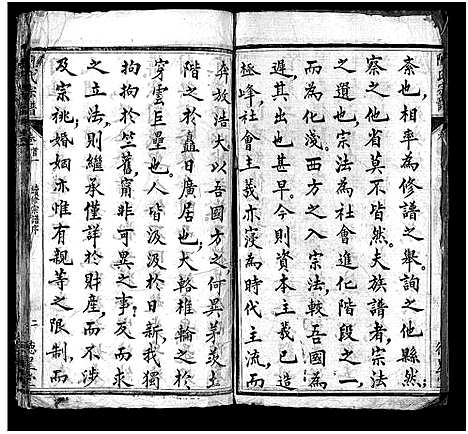 紊也相率為修譜之舉詢之他縣然
察之他省莫不皆然夫族譜者宗法
之遺也宗法為社會進化階段之一
而為化淺西方之入宗法較吾國為
遲其出也甚早則資本主義已造
極峰社會主義亦寖為時代主流而
奔放浩大以吾國方之何異茅茨土
階之於矗日廣居也大輅椎輪之於
穿雲巨壘也人皆汲汲於日新我獨
拘拘於竺舊甯非可異之事及而求
之立法則繼承僅詳於財產而不涉
及宗祧婚姻亦惟有親等之限制而
氏宗譜
卷首
續修宗譜序
二
德星